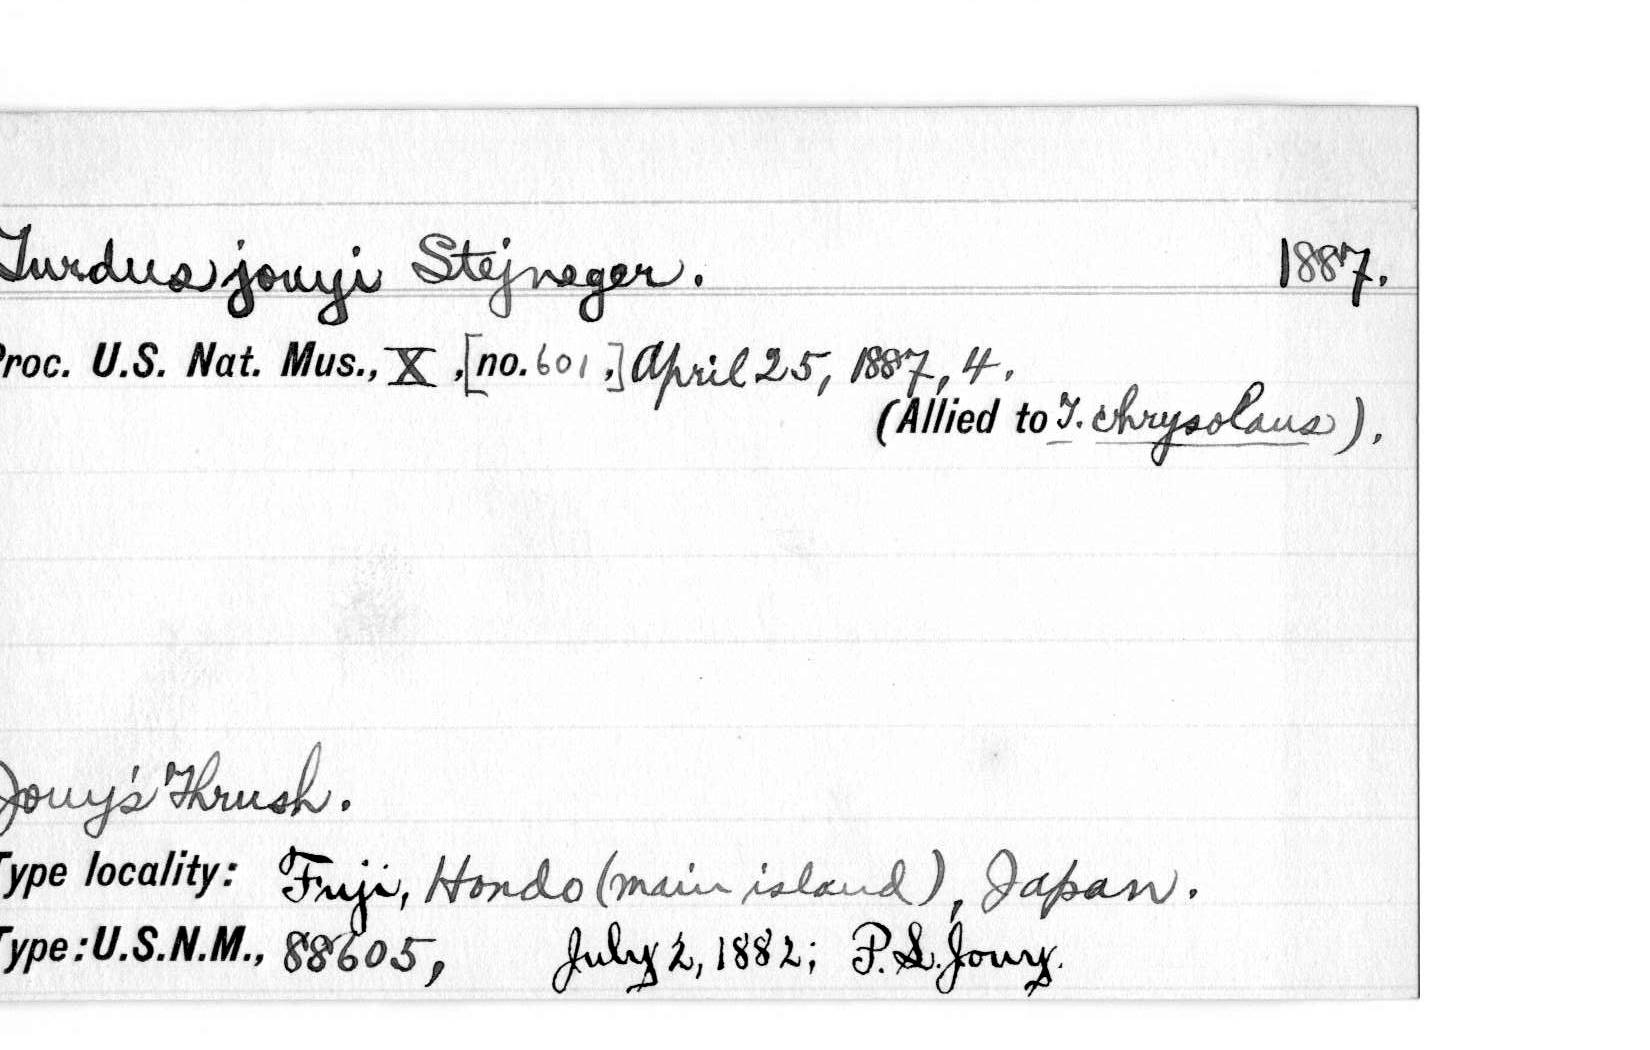 Turdus jouyi Stejneger. 1887.
Proc. U.S. Nat. Mus., X, [no. 601,] April 25, 1887, 4.
(Allied to T. chrysolaus).
Jouy's Thrush.
Type locality: Fuji, Hondo (main island), Japan.
Type: U.S.N.M., 88605, July 2, 1882; P. L. Jouy.